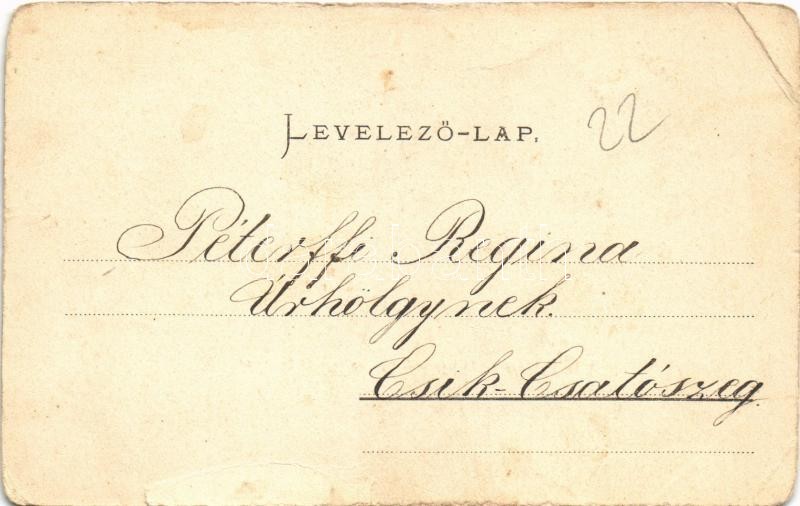 LEVELEZŐ-LAP.
22
Péterffi Regina
Úrhölgynek.
Csik-Csatószeg.